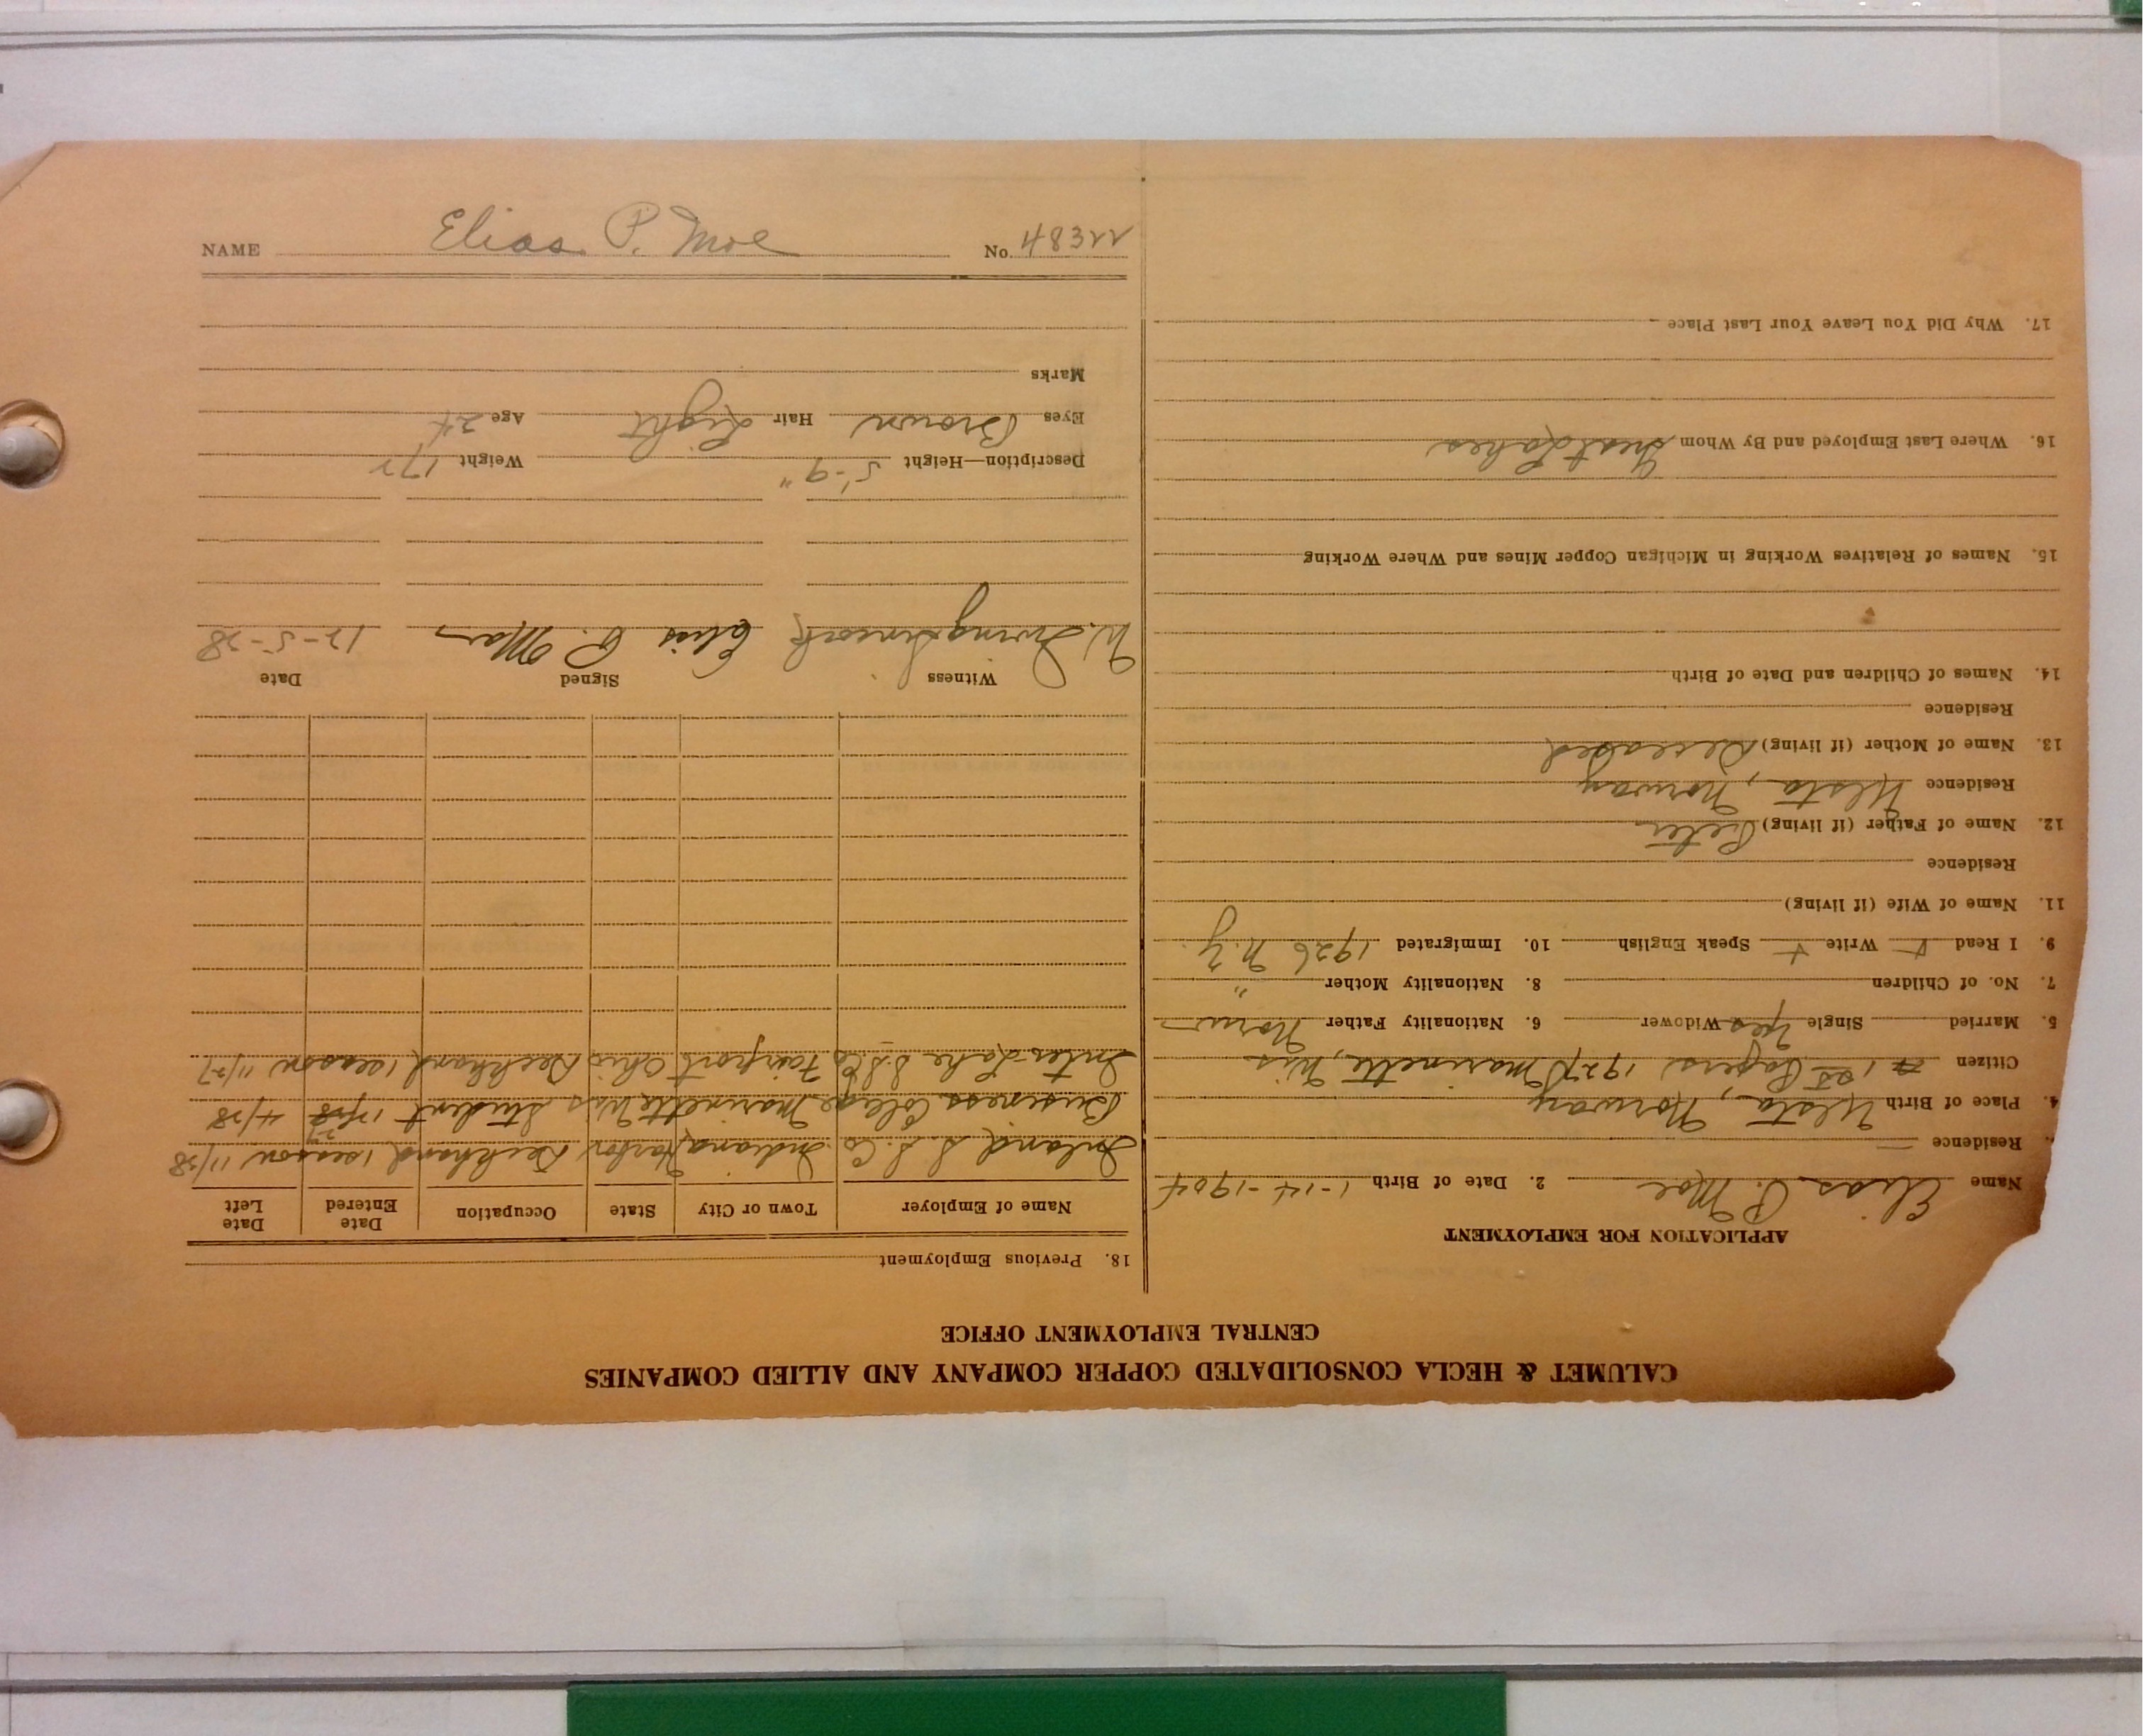 NAME Elias P. Moe No. 48322
CALUMET & HECLA CONSOLIDATED COPPER COMPANY AND ALLIED COMPANIES
CENTRAL EMPLOYMENT OFFICE
APPLICATION FOR EMPLOYMENT
Name Elias P. Moe 2. Date of Birth 1-14-1904
Residence
4. Place of Birth Ulsta, Norway
Citizen 1st Papers 1927 Marinette, Wis
5. Married Single Yes Widower 6. Nationality Father Norw
7. No. of Children 8. Nationality Mother "
9. I Read Write Speak English 10. Immigrated 1926 N.Y.
11. Name of Wife (if living)
Residence
12. Name of Father (if living) Peter
Residence Ulsta, Norway
13. Name of Mother (if living) Deceased
Residence
14. Names of Children and Date of Birth
15. Names of Relatives Working in Michigan Copper Mines and Where Working
16. Where Last Employed and By Whom Great Lakes
17. Why Did You Leave Your Last Place
18. Previous Employment
Name of Employer Town or City State Occupation Date Entered Date Left
Inland S. S. Co. Indiana Harbor Deckhand 1 season 11/28
Business College Marinette Wis Student 27 4/28
Inter-Lake S.S. Co Fairport Ohio Deckhand 1 season 11/27
Witness Signed Date
W. Elias P. Moe 12-5-28
Description—Height 5'-9" Weight 172
Eyes Brown Hair Light Age 24
Marks